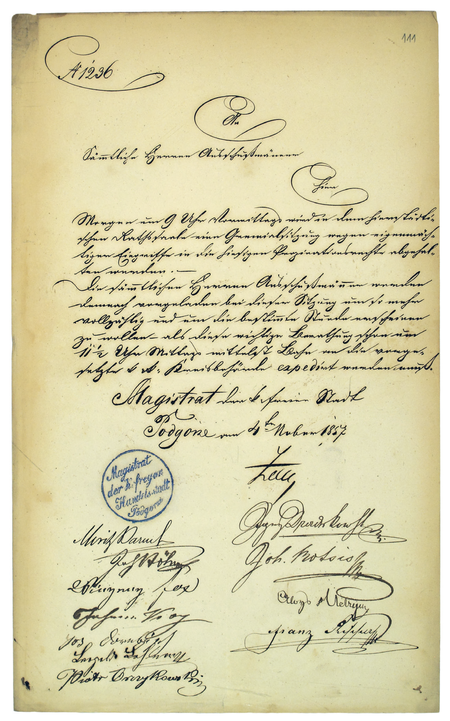 111
№ 1236
An
Sämmtliche Herren Ausschußmänner
Hier
Morgen um 9 Uhr Vormittags wird in dem hierstädti-
schen Rathssaale eine Gremialsitzung wegen eigenmäch-
tiger Eingriffe in die hiesigen Propinationsrechte abgehal-
ten werden.
Die sämmtlichen Herren Ausschußmänner werden
demnach vorgeladen bei dieser Sitzung um so mehr
vollzählig und um die bestimmte Stunde erscheinen
zu wollen als diese wichtige Berathung schon um
11½ Uhr Mittags mittelst Bahn an die vorge-
setzte k. k. Kreisbehörde expedirt werden muß.
Magistrat der k. freien Stadt
Podgorze am 4ten Nober 1857
Magistrat
der k. freyen
Handelsstadt
Podgorze
Joh.
Aloys
Franz
Piotr